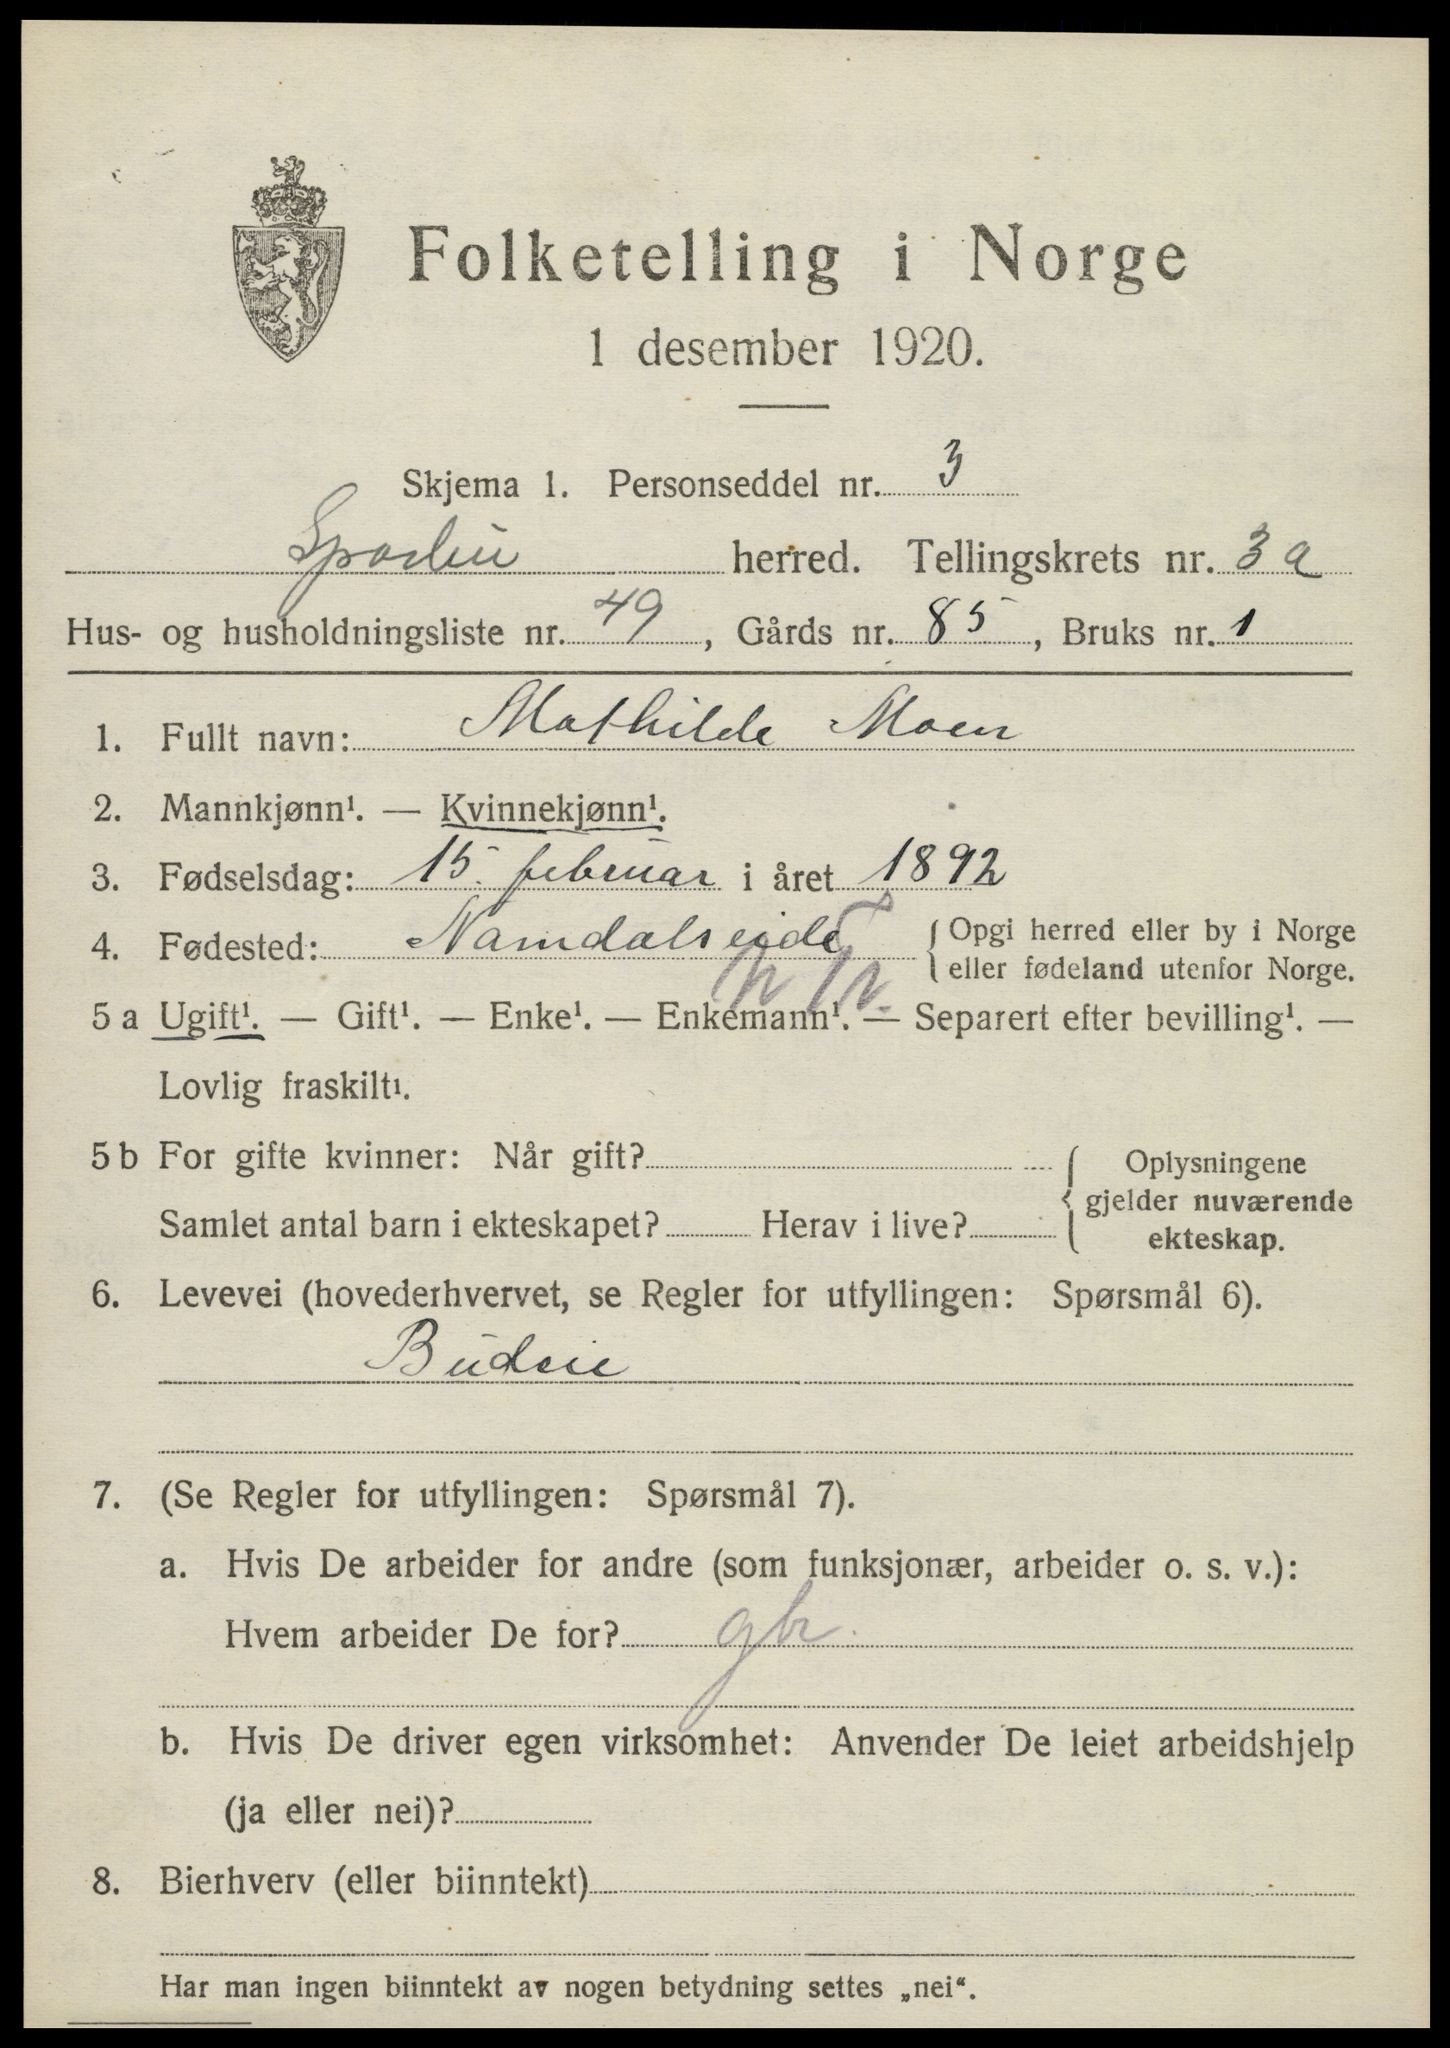 Folketelling i Norge
1 desember 1920.
Skjema 1. Personseddel nr. 3
Sparbu herred. Tellingskrets nr. 3 a
Hus- og husholdningsliste nr. 49, Gårds nr. 85, Bruks nr. 1
1. Fullt navn: Mathilde Moen
2. Mannkjønn¹. — Kvinnekjønn¹.
3. Fødselsdag: 15. februar i året 1892
4. Fødested: Namdalseide { Opgi herred eller by i Norge
eller fødeland utenfor Norge.
N Tr.
5 a Ugift¹. — Gift¹. — Enke¹. — Enkemann¹. — Separert efter bevilling¹. —
Lovlig fraskilt¹.
5 b For gifte kvinner: Når gift? { Oplysningene
gjelder nuværende
Samlet antal barn i ekteskapet? Herav i live? ekteskap.
6. Levevei (hovederhvervet, se Regler for utfyllingen: Spørsmål 6).
Budeie
7. (Se Regler for utfyllingen: Spørsmål 7).
a. Hvis De arbeider for andre (som funksjonær, arbeider o. s. v.):
Hvem arbeider De for? gbr.
b. Hvis De driver egen virksomhet: Anvender De leiet arbeidshjelp
(ja eller nei)?
8. Bierhverv (eller biinntekt)
Har man ingen biinntekt av nogen betydning settes „nei“.